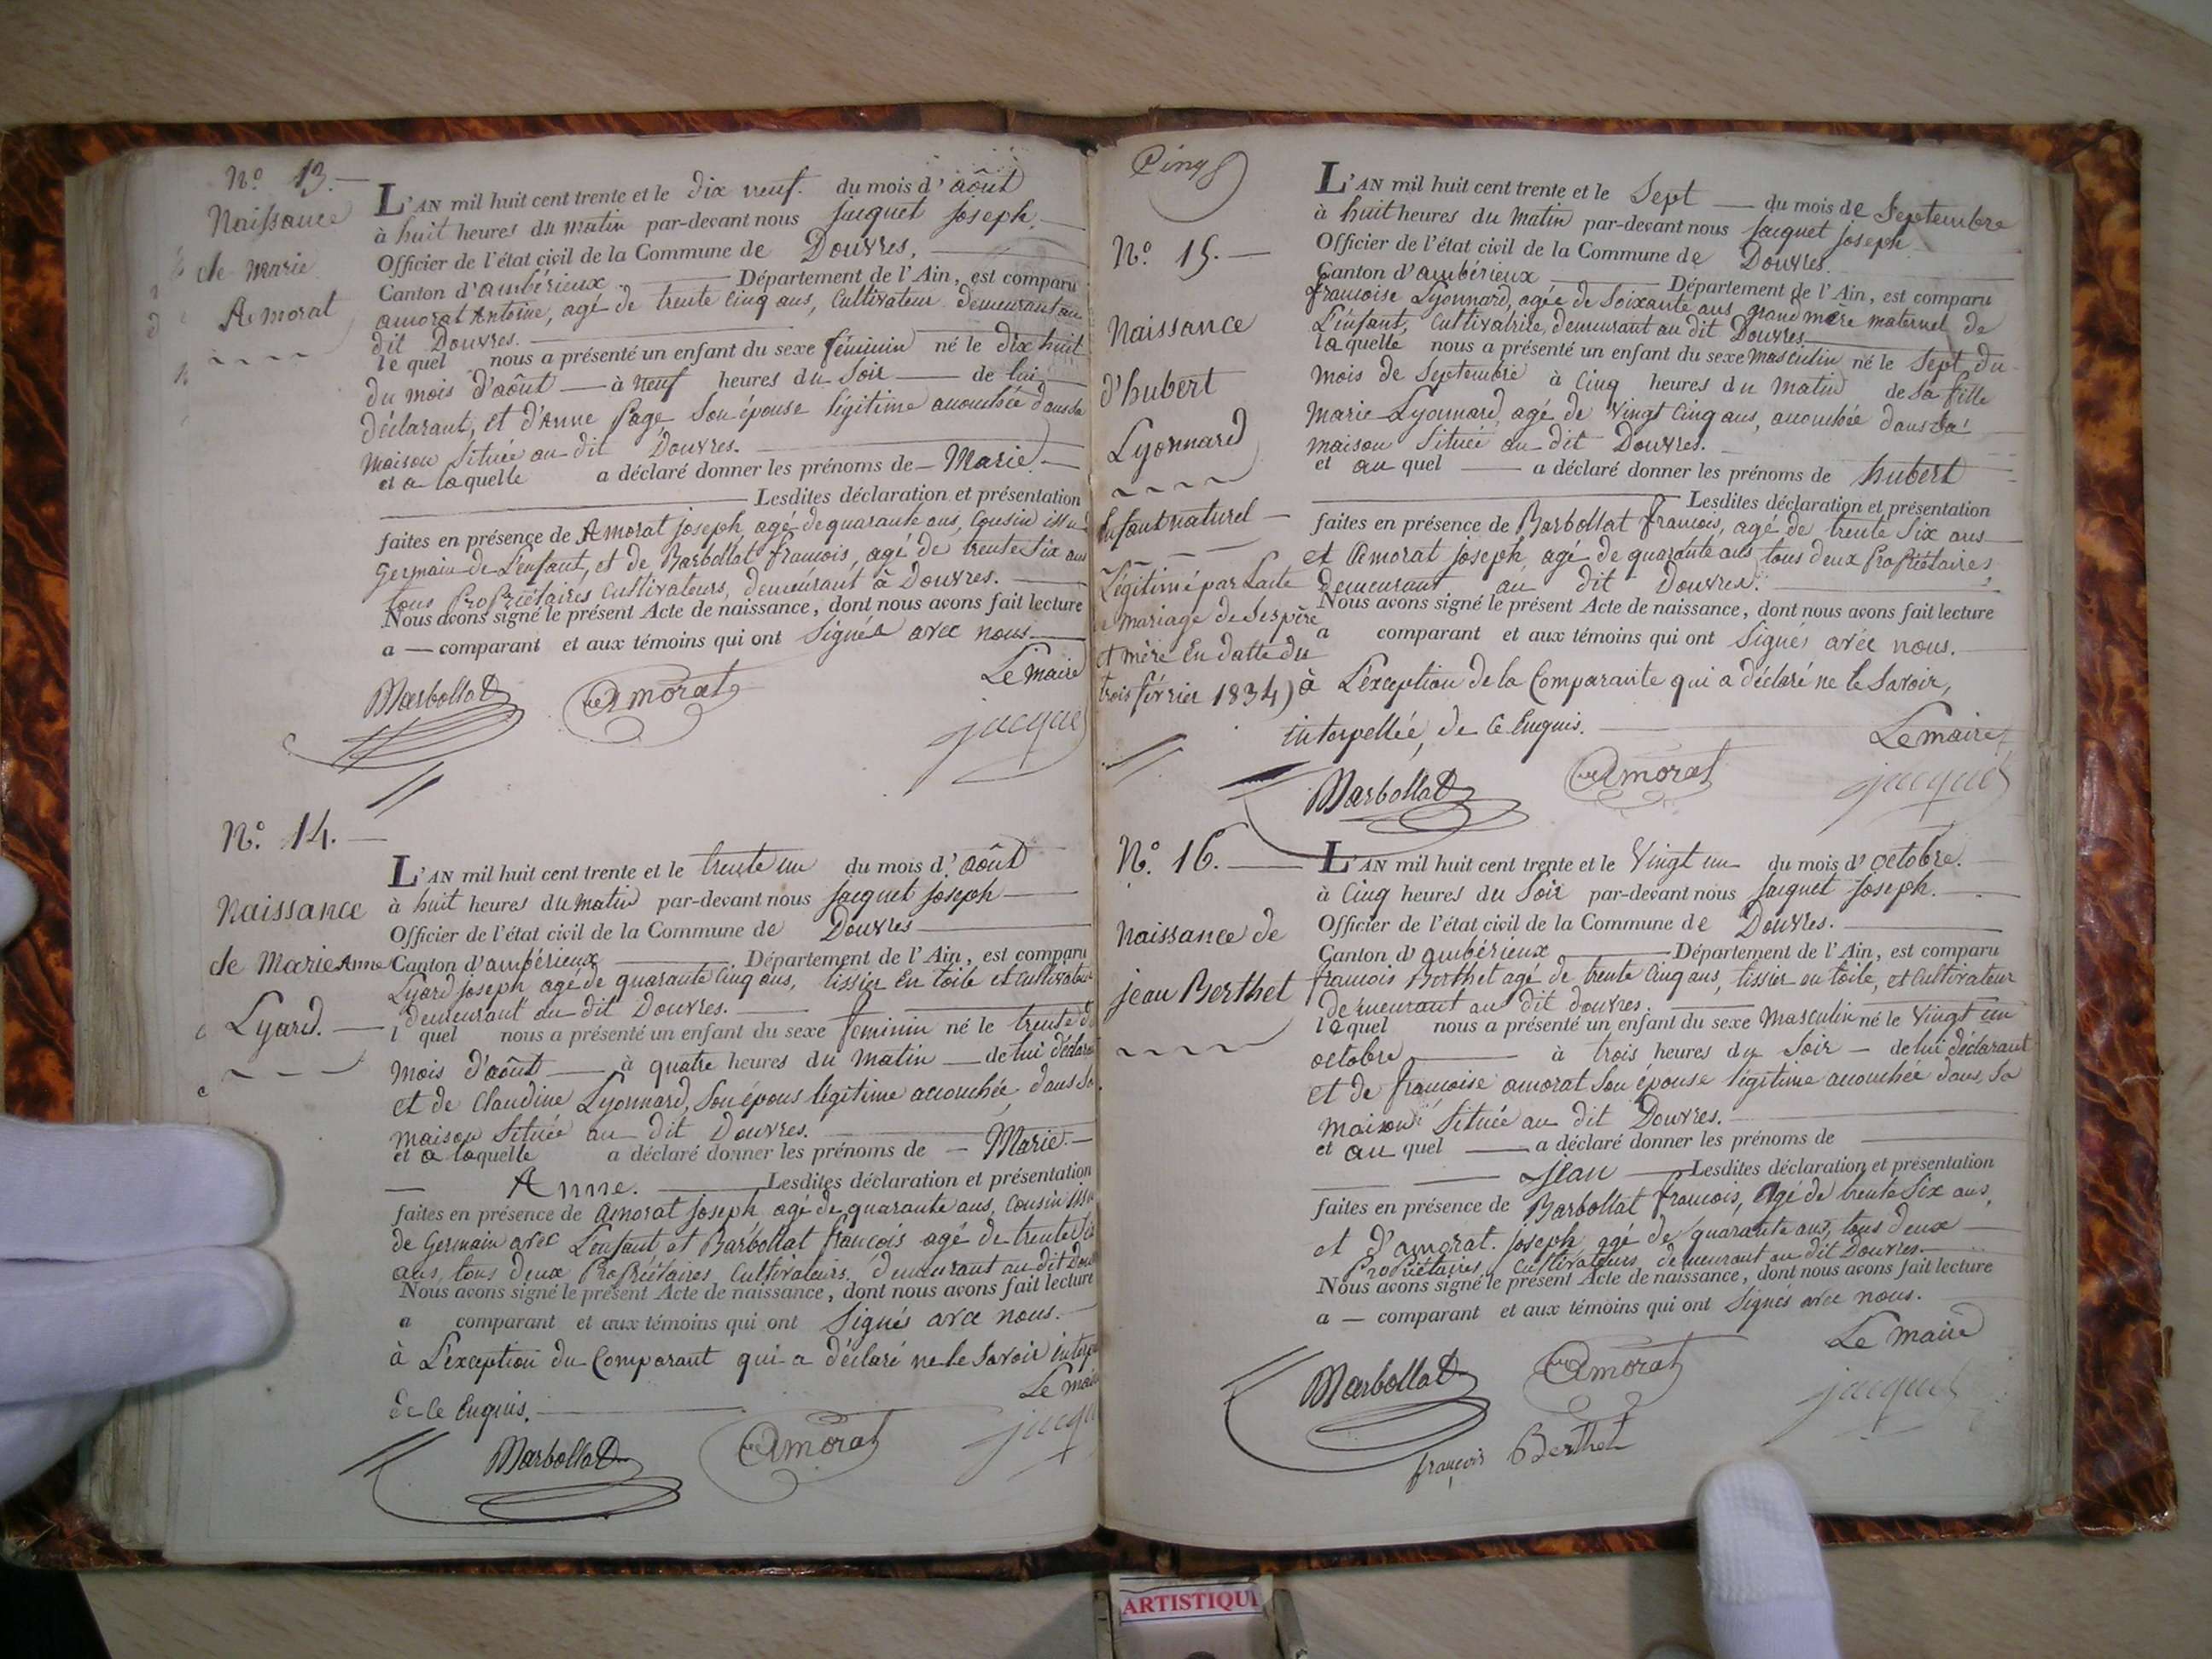 N.º 13.
Naissance
de Marie
Amorat
L'AN mil huit cent trente et le dix neuf du mois d'août
à huit heures du matin par-devant nous Jacquet joseph
Officier de l'état civil de la Commune de Douvres,
Canton d'ambérieux Département de l'Ain, est comparu
amorat Antoine, agé de trente Cinq ans, Cultivateur demeurant au
dit Douvres.
lequel nous a présenté un enfant du sexe féminin né le dix huit
du mois d'août à neuf heures du Soir de lui
déclarant, et d'Anne Page Son épouse légitime accouchée dans Sa
maison Située au dit Douvres.
et a laquelle a déclaré donner les prénoms de Marie
Lesdites déclaration et présentation
faites en présence de Amorat joseph, agé de quarante ans, Cousin issu
Germain de L'enfant, et de Barbollat francois, agé de trente Six ans
tous Propriétaires Cultivateurs, demeurant à Douvres.
Nous avons signé le présent Acte de naissance, dont nous avons fait lecture
a comparant et aux témoins qui ont Signés avec nous
Le maire
Barbollat Amorat jacquet
N.º 14.
Naissance
de Marie Anne
Lyard.
L'AN mil huit cent trente et le trente un du mois d'août
à huit heures du matin par-devant nous Jacquet joseph
Officier de l'état civil de la Commune de Douvres
Canton d'ambérieux Département de l'Ain, est comparu
Lyard joseph agé de quarante Cinq ans, tissier En toile et Cultivateur
demeurant au dit Douvres.
l quel nous a présenté un enfant du sexe feminin né le trente d
mois d'août à quatre heures du matin de lui déclarant
et de Claudine Lyonnard, Son épous légitime accouchée dans Sa
maison Située au dit Douvres.
et a laquelle a déclaré donner les prénoms de Marie
Anne. Lesdites déclaration et présentation
faites en présence de Amorat joseph agé de quarante ans, Cousin issu
de Germain avec L'enfant et Barbollat francois agé de trente Six
ans, tous deux Propriétaires Cultivateurs demeurant au dit Dou
Nous avons signé le présent Acte de naissance, dont nous avons fait lecture
a comparant et aux témoins qui ont Signés avec nous.
à L'exception du Comparant qui a déclaré ne le Savoir interp
de Ce Enquis.
Le mai
Barbollat Amorat jacqu
Cinq
N.º 15.
Naissance
d'hubert
Lyonnard
Enfant naturel
Légitimé par Lacte
de mariage de Ses père
et mère En datte du
trois février 1834)
L'AN mil huit cent trente et le Sept du mois de Septembre
à huit heures du Matin par-devant nous Jacquet joseph
Officier de l'état civil de la Commune de Douvres.
Canton d'ambérieux Département de l'Ain, est comparu
francoise Lyonnard, agée de Soixante ans grand mère maternel de
L'enfant, Cultivatrice, demeurant au dit Douvres
laquelle nous a présenté un enfant du sexe masculin né le Sept du
mois de Septembre à Cinq heures du Matin de Sa fille
Marie Lyonnard, agé de Vingt Cinq ans, accouchée dans Sa
maison Située au dit Douvres.
et au quel a déclaré donner les prénoms de hubert
Lesdites déclaration et présentation
faites en présence de Barbollat francois, agé de trente Six ans
et Amorat joseph, agé de quarante ans tous deux Propriétaires
demeurant au dit Douvres.
Nous avons signé le présent Acte de naissance, dont nous avons fait lecture
a comparant et aux témoins qui ont Signés avec nous.
à L'exception de la Comparante qui a déclaré ne le Savoir,
interpellée, de Ce Enquis.
Le maire
Barbollat Amorat jacquet
N.º 16.
Naissance de
jean Berthet
L'AN mil huit cent trente et le Vingt un du mois d'octobre.
à Cinq heures du Soir par-devant nous Jacquet joseph.
Officier de l'état civil de la Commune de Douvres.
Canton d'ambérieux Département de l'Ain, est comparu
francois Berthet agé de trente Cinq ans, tissier en toile, et Cultivateur
demeurant au dit douvres.
lequel nous a présenté un enfant du sexe Masculin né le Vingt un
octobre à trois heures du Soir de lui déclarant
et de francoise amorat Son épouse légitime accouchée dans Sa
maison Située au dit Douvres.
et au quel a déclaré donner les prénoms de
jean Lesdites déclaration et présentation
faites en présence de Barbollat francois, Agé de trente Six ans,
et d'amorat joseph agé de quarante ans, tous deux
Propriétaires Cultivateurs demeurant au dit Douvres.
Nous avons signé le présent Acte de naissance, dont nous avons fait lecture
a comparant et aux témoins qui ont Signés avec nous.
Le maire
Barbollat Amorat jacquet
françois Berthet
ARTISTIQU